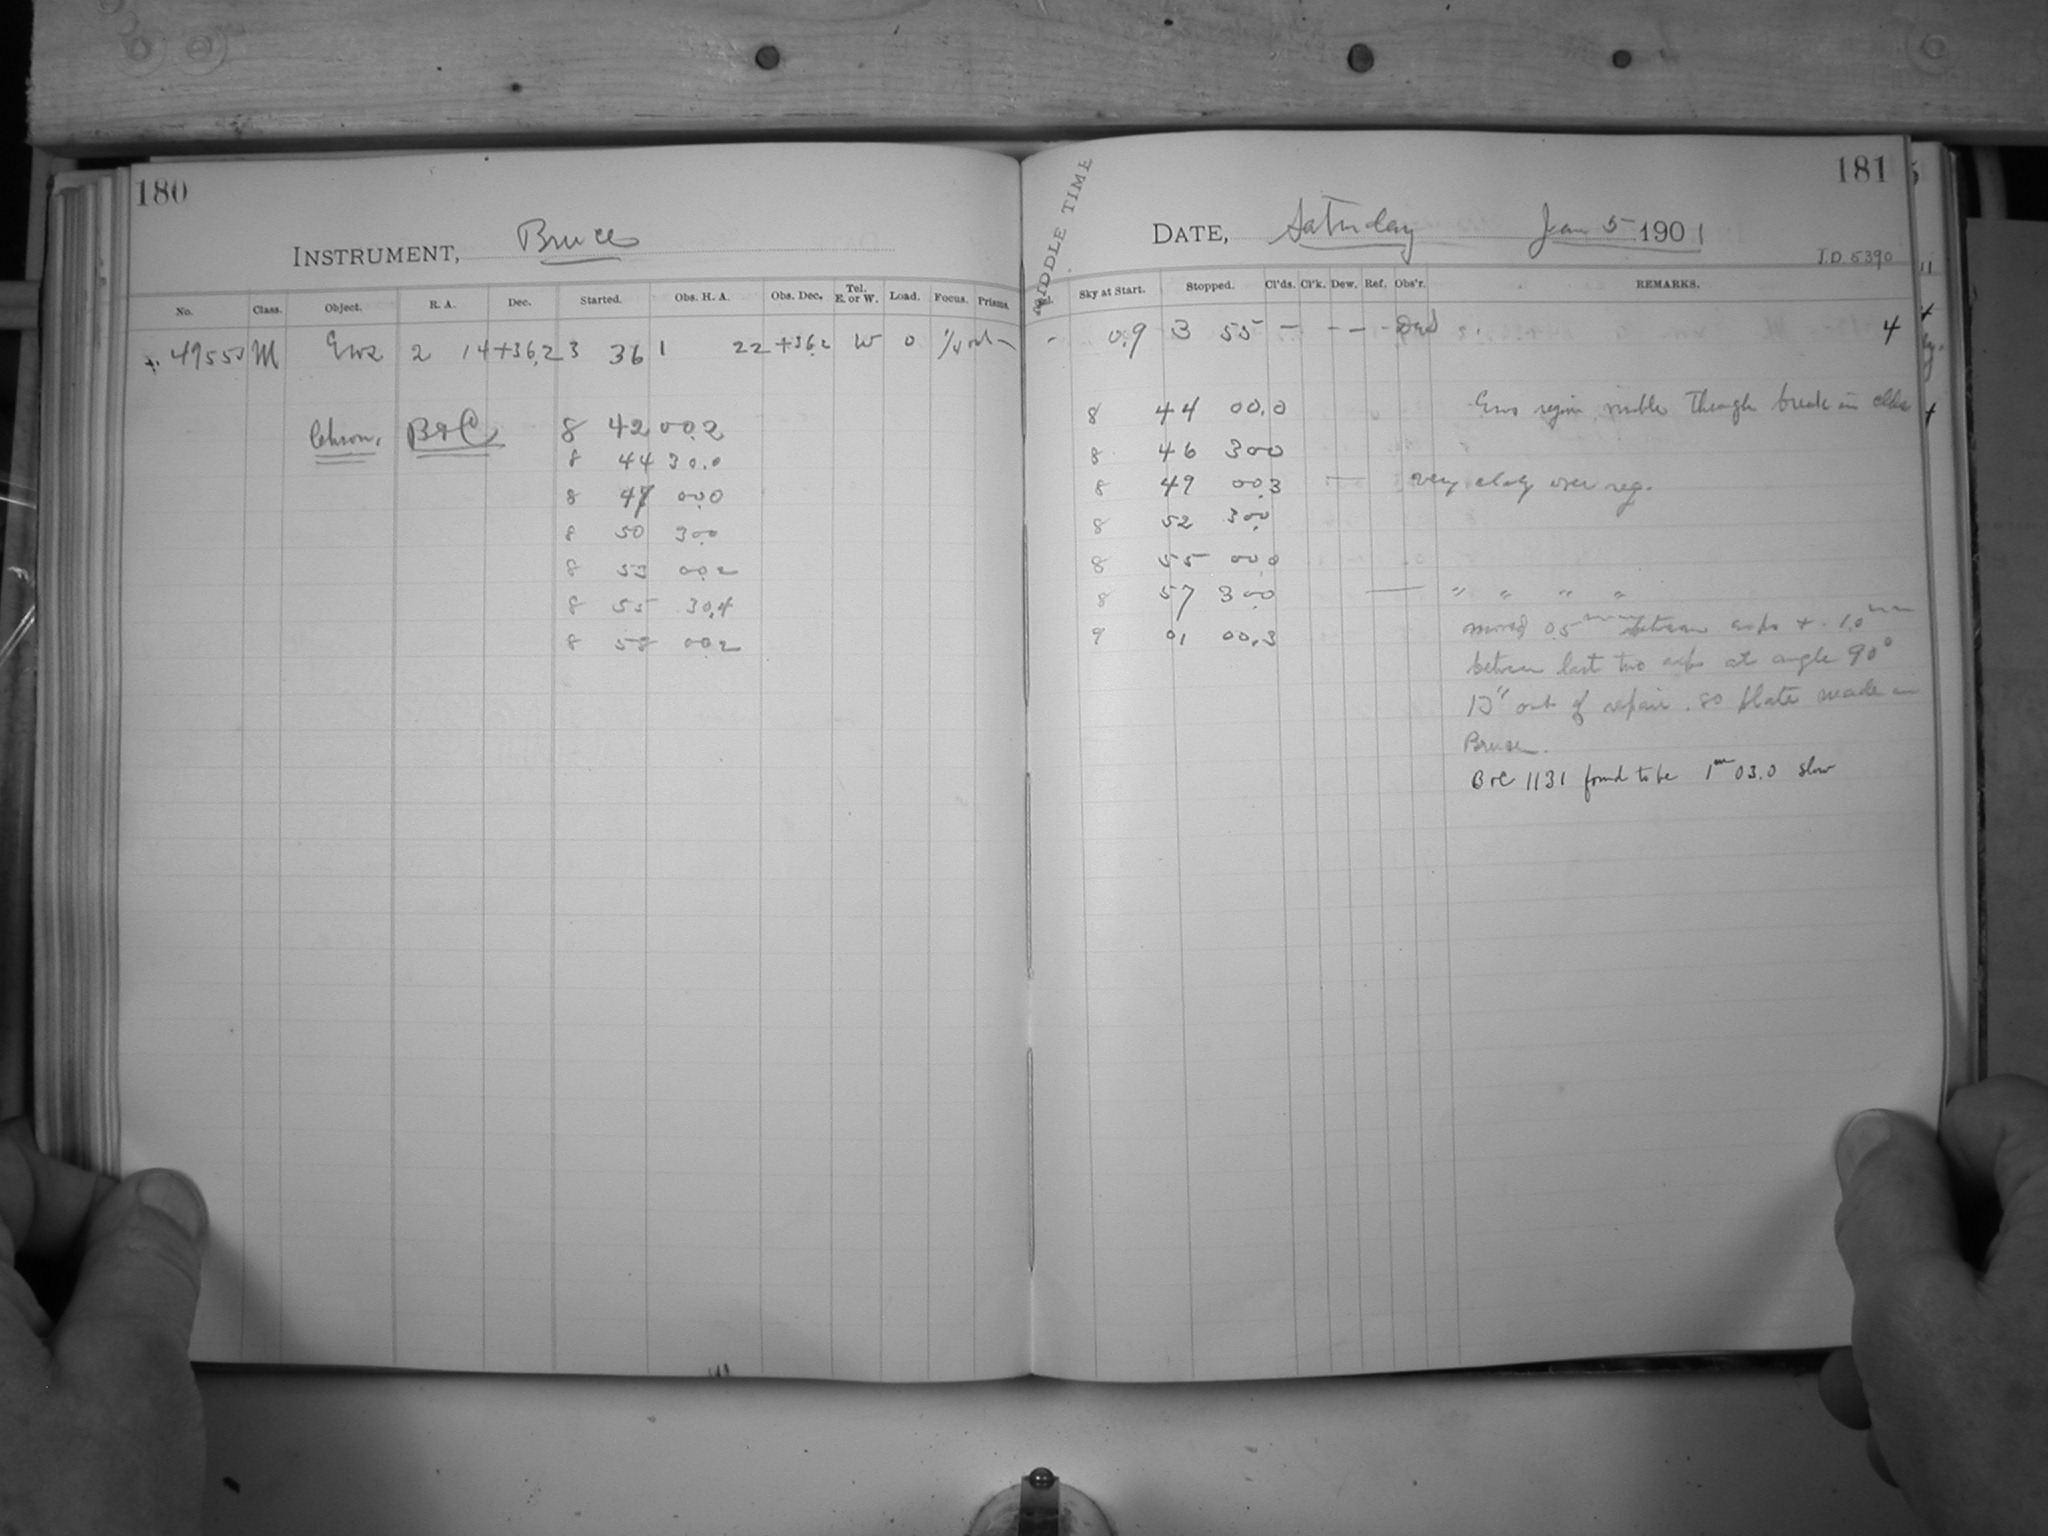 180
INSTRUMENT, Bruce
No. Class. Object. R. A. Dec. Started. Obs. H. A. Obs. Dec. Tel. E. or W. Load. Focus. Prisms.
49553 M Eros 2 14 +36.2 3 36 1 22 +36.2 W 0
Chron. B&C 8 42 00.2
8 44 30.0
8 47 00.0
8 50 30.0
8 53 00.2
8 55 30.4
8 58 00.2
181
MIDDLE TIME
DATE, Saturday Jan 5 1901
J.D. 5390
Sky at Start. Stopped. Cl'ds. Cl'k. Dew. Ref. Obs'r. REMARKS.
- 0.9 3 55 - - - - 4
8 44 00.0 Eros region visible through break in clds
8 46 30.0
8 49 00.3 very cloudy over reg.
8 52 30.0
8 55 00.0
8 57 30.0 " " " "
9 01 00.3 moved 0.5 mm between exps + 1.0 mm
between last two exps at angle 90°
12" out of repair. so plate made in
Bruce.
B&C 1131 found to be 1m 03.0 slow